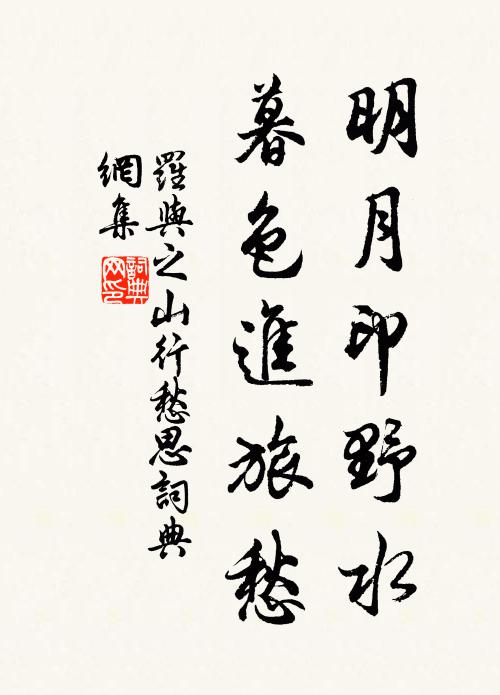 明月印野水
暮色進旅愁
羅與之山行愁思詞典
網集
詞典
网印